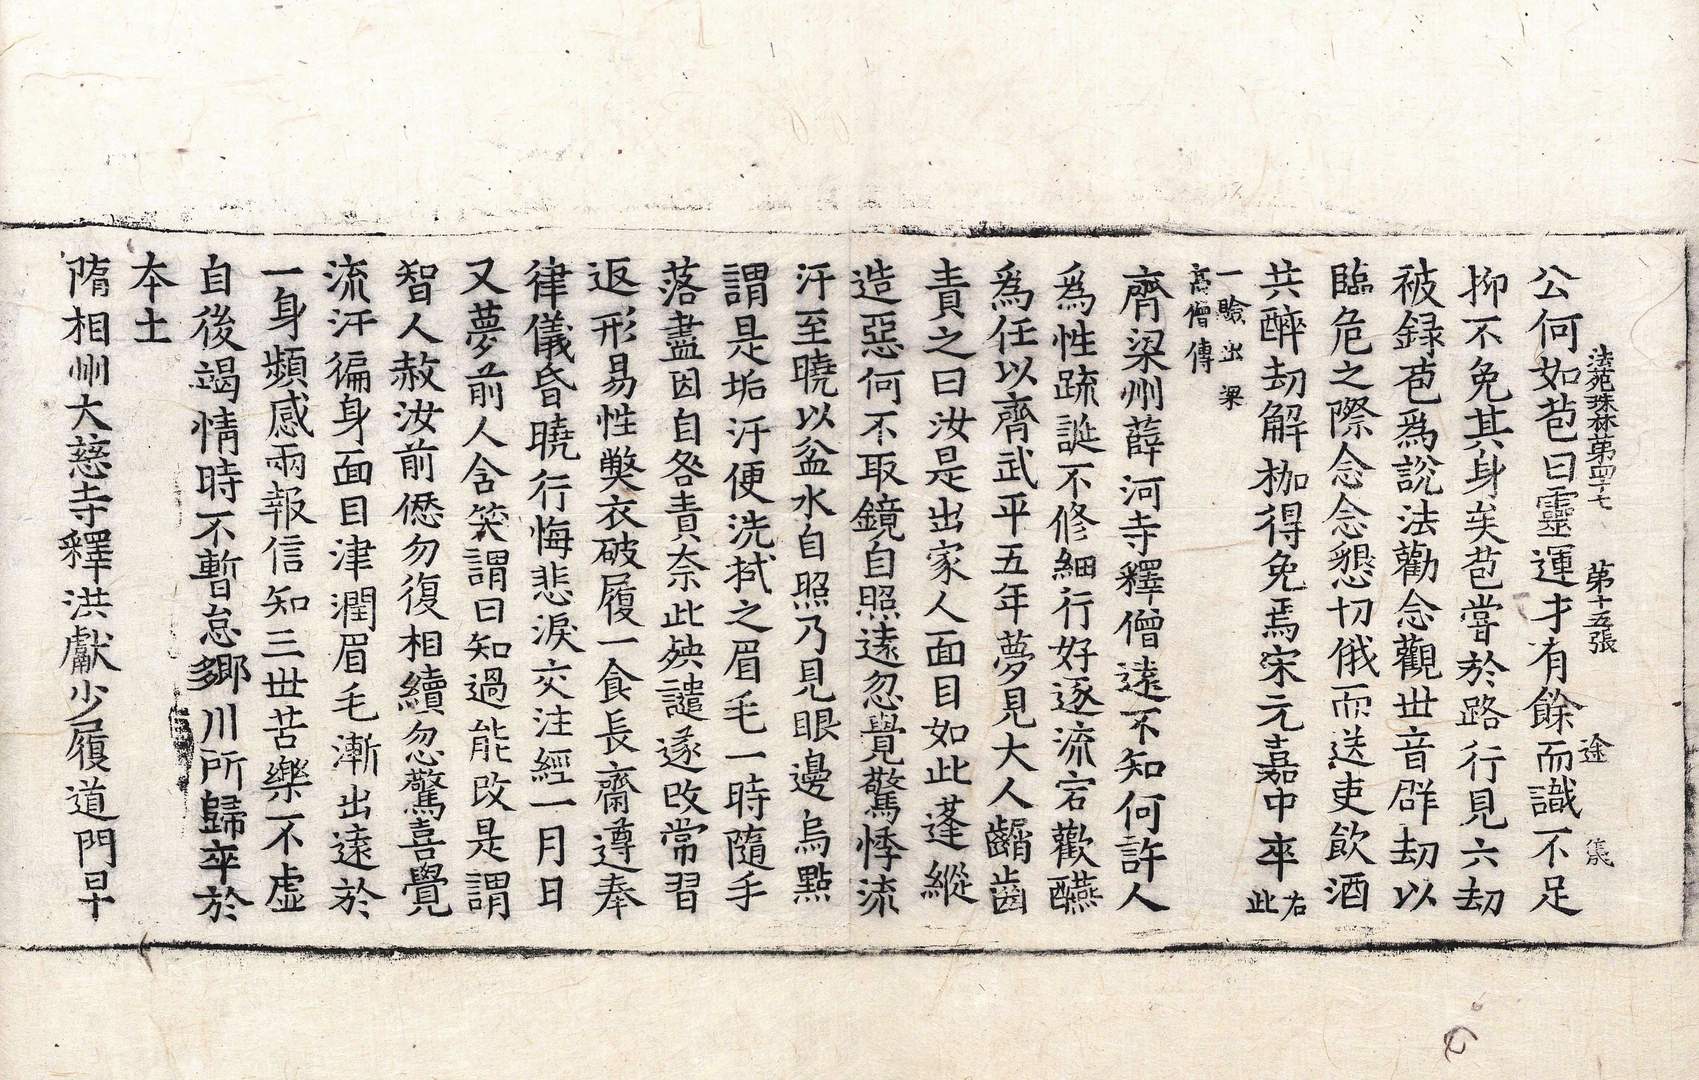 法苑珠林第四十七 第十五張 途 儀
公何如苞曰靈運才有餘而識不足
抑不免其身矣苞嘗於路行見六劫
被録苞爲說法勸念觀世音群劫以
臨危之際念念懇切俄而送吏飲酒
共醉劫解枷得免焉宋元嘉中卒右此
一驗出梁
高僧傳
齊梁州薛河寺釋僧遠不知何許人
爲性疏誕不修細行好逐流宕歡醼
爲任以齊武平五年夢見大人齭齒
責之曰汝是出家人面目如此蓬縱
造惡何不取鏡自照遠忽覺驚悸流
汗至曉以盆水自照乃見眼邊烏點
謂是垢汙便洗拭之眉毛一時隨手
落盡因自咎責奈此殃譴遂改常習
返形易性獘衣破履一食長齋遵奉
律儀昏曉行悔悲淚交注經一月日
又夢前人含笑謂曰知過能改是謂
智人赦汝前愆勿復相續忽驚喜覺
流汗徧身面目津潤眉毛漸出遠於
一身頻感兩報信知三世苦樂不虛
自後竭情時不暫怠鄉川所歸卒於
本土
隋相州大慈寺釋洪獻少履道門早